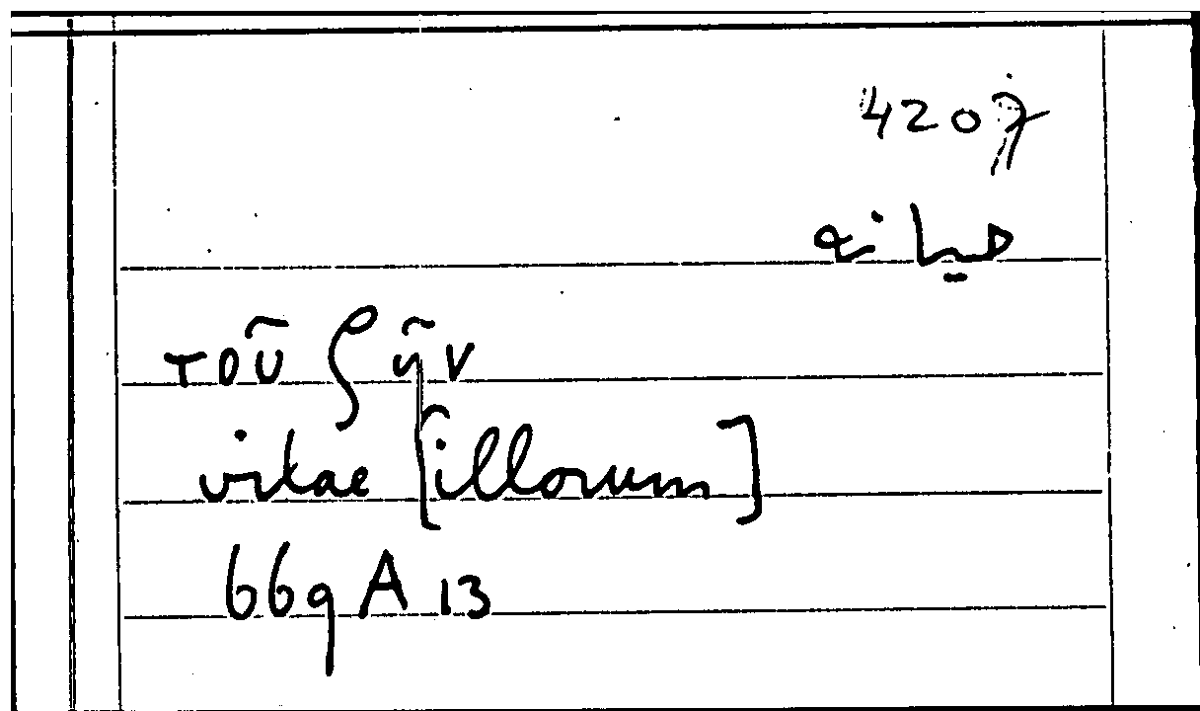 4207
حياته
τοῦ ζῆν
vitae [illorum]
669 A 13